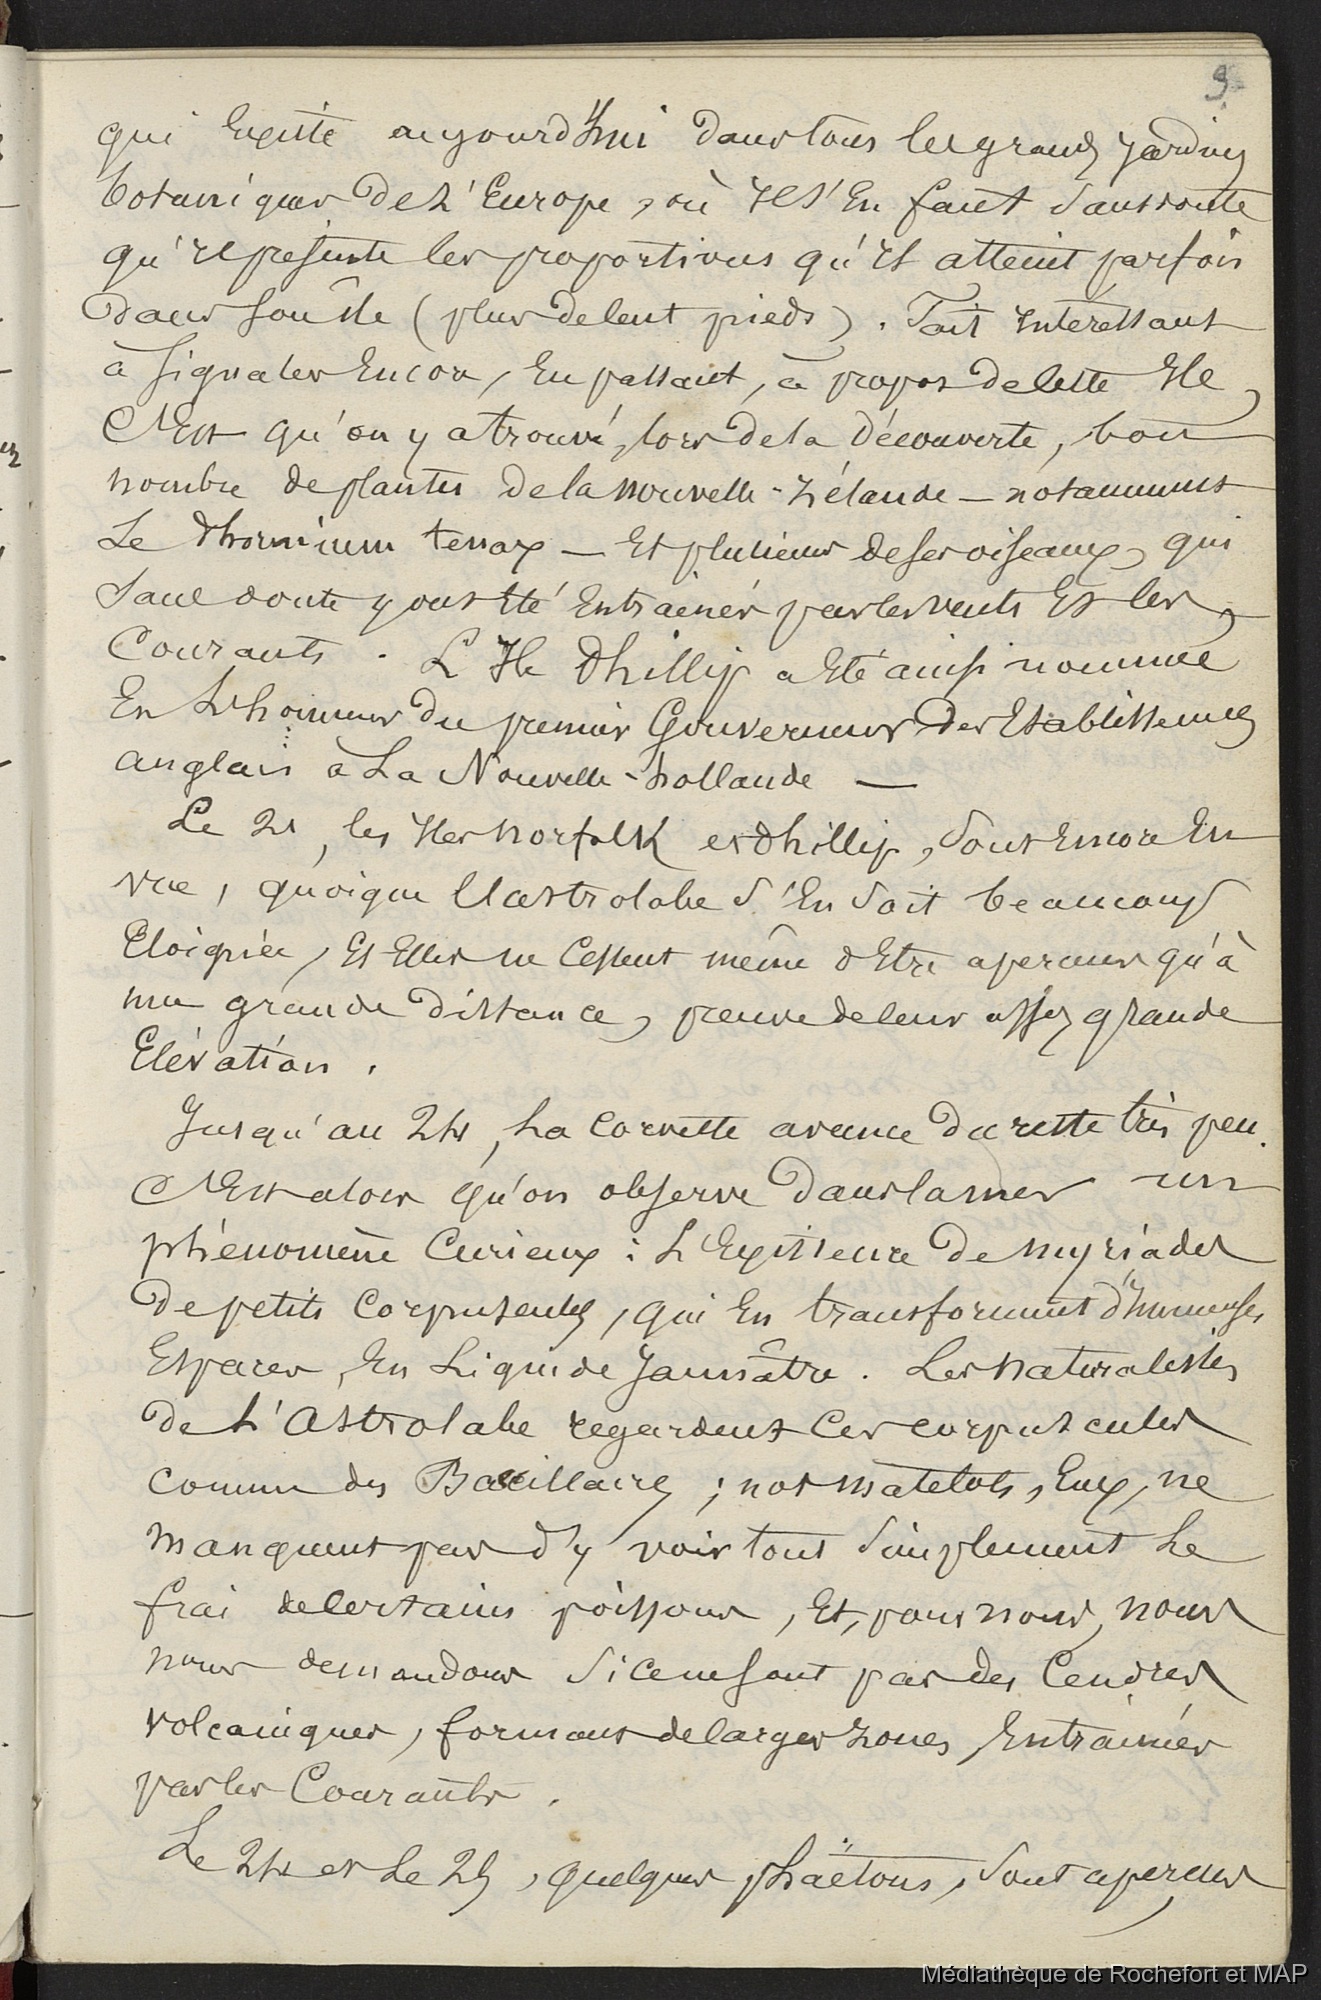 9
qui existe aujourd'hui dans tous les grands jardins
botaniques de l'Europe, où il s'en faut sans doute
qu'il présente les proportions qu'il atteint parfois
dans son île (plus de cent pieds). Fait intéressant
à signaler encore, en passant, à propos de cette île,
c'est qu'on y a trouvé, lors de la découverte, bon
nombre de plantes de la nouvelle-Zélande — notamment
le Phormium tenax — et plusieurs de ses oiseaux, qui
sans doute y ont été entraînés par les vents et les
courants. L'île Phillip a été ainsi nommée
en l'honneur du premier Gouverneur des Etablissements
anglais à la Nouvelle-hollande —
Le 21, les îles norfolk et Phillip, sont encore en
vue, quoique l'astrolabe s'en soit beaucoup
éloignée, et elles ne cessent même d'être aperçues qu'à
une grande distance, preuve de leur assez grande
élévation.
Jusqu'au 24, la corvette avance du reste très peu.
C'est alors qu'on observe dans la mer un
phénomène curieux : l'existence de myriades
de petits corpuscules, qui en transforment d'immenses
espaces, en liquide jaunâtre. Les naturalistes
de l'Astrolabe regardent ces corpuscules
comme des Bacillaires ; nos matelots, eux, ne
manquent pas d'y voir tout simplement le
frai de certains poissons, et, pour nous, nous
nous demandons si ce ne sont pas des cendres
volcaniques, formant de larges zones, entraînées
par les courants.
Le 24 et le 25, quelques phaëtons, sont aperçus
Médiathèque de Rochefort et MAP